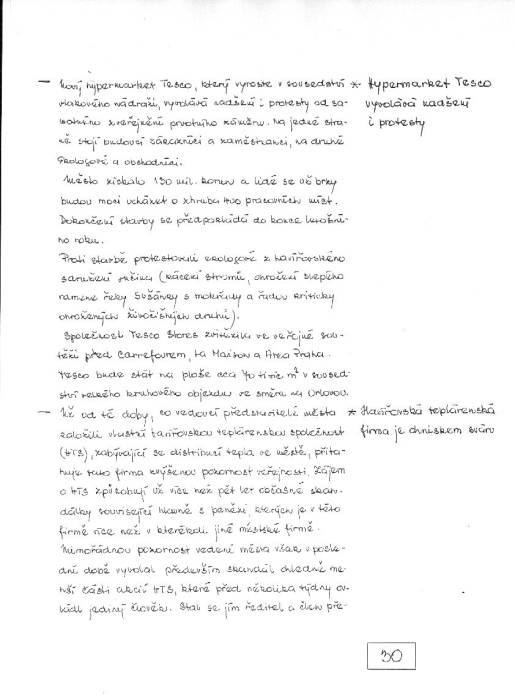 — Nový hypermarket Tesco, který vyroste v sousedství
vlakového nádraží, vyvolává nadšení i protesty od sa-
motného zveřejnění prvotního záměru. Na jedné stra-
ně stojí budoucí zákazníci a zaměstnanci, na druhé
ekologové a obchodníci.
Město získalo 130 mil. korun a lidé se už brzy
budou moci ucházet o zhruba 400 pracovních míst.
Dokončení stavby se předpokládá do konce letošní-
ho roku.
Proti stavbě protestovali ekologové z havířovského
sdružení (kácení stromů, ohrožení slepého
ramene řeky Sušanky s mokřady a řadou kriticky
ohrožených živočišných druhů).
Společnost Tesco Stores zvítězila ve veřejné sou-
těži před Carrefourem, La Maison a Area Praha.
Tesco bude stát na ploše cca 40 tisíc m² v soused-
ství velkého kruhového objezdu ve směru na Orlovou.
— Už od té doby, co vedoucí představitelé města
založili vlastní havířovskou teplárenskou společnost
(HTS), zabývající se distribucí tepla ve městě, přita-
huje tato firma zvýšenou pozornost veřejnosti. Zájem
o HTS způsobují už více než pět let občasné skan-
dálky související hlavně s penězi, kterých je v této
firmě více než v kterékoli jiné městské firmě.
Mimořádnou pozornost vedení města však v posle-
dní době vyvolal především skandál ohledně me-
nší části akcií HTS, které před několika týdny ov-
ládl jediný člověk. Stal se jím ředitel a člen pře-
* Hypermarket Tesco
vyvolává nadšení
i protesty
* Havířovská teplárenská
firma je ohniskem sváru
30